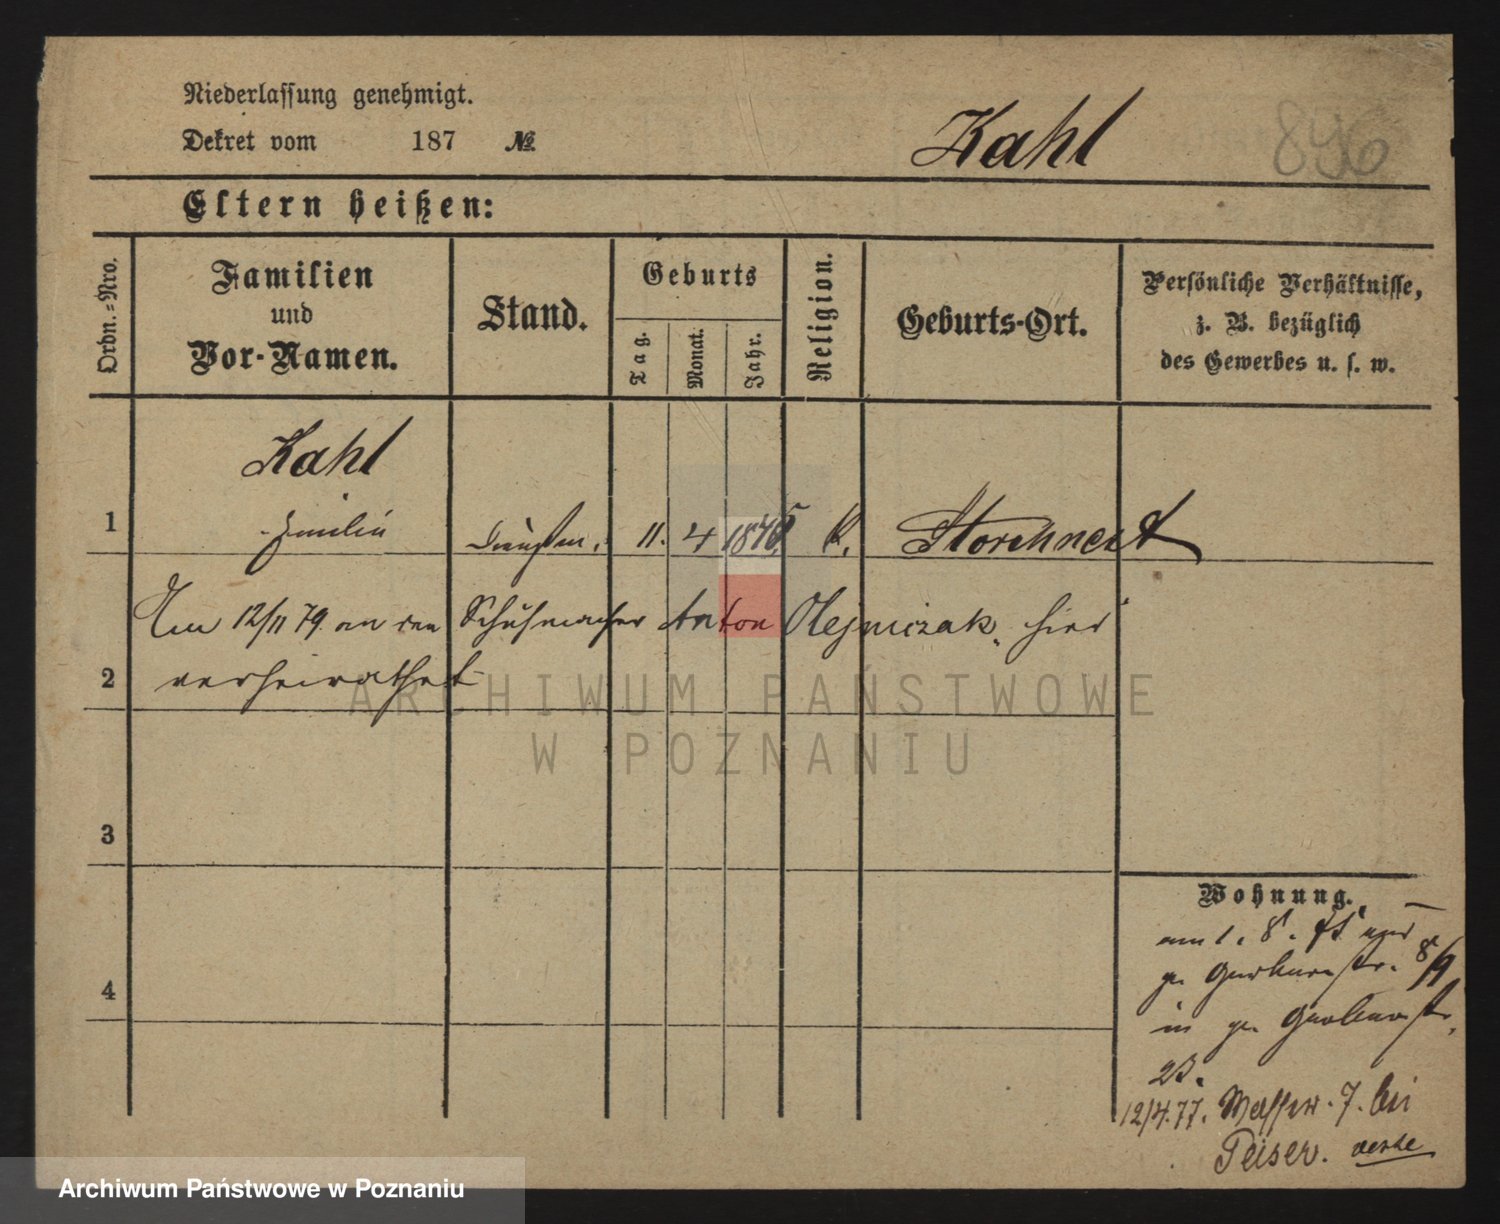 Niederlassung genehmigt.
Dekret vom 187 №
Kahl
846
Eltern heißen:
Ordn.-Nro.
Familien
und
Vor-Namen.
Stand.
Geburts
Tag.
Monat.
Jahr.
Religion.
Geburts-Ort.
Persönliche Verhältnisse,
z. B. bezüglich
des Gewerbes u. s. w.
Kahl
1 Emilie 11. 4 K. Storchnest
Am 12/11 79. an den Schuhmacher Anton Olejniczak, hier
2 verheirathet
ARCHIWUM PAŃSTWOWE
W POZNANIU
3
4
Wohnung.
gr. Gerberstr. 8/9
in gr. Gerberstr.
23.
12/4.77. Wasserst. 7. bei
Peiser.
Archiwum Państwowe w Poznaniu